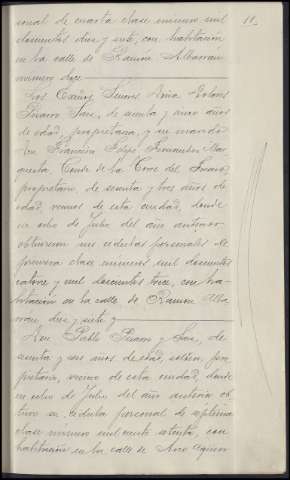 11.
sonal de cuarta clase número mil
doscientos diez y siete, con habitación
en la calle de Ramón Albarran
número doce
Los Exmos Señores Doña Dolores
Pizarro Saez, de sesenta y cinco años
de edad, propietaria, y su marido
Don Francisco Felipe Fernandez Mar
questa, Conde de la Torre del Fresno,
propietario, de sesenta y tres años de
edad, vecinos de esta ciudad, donde
en ocho de Julio del año anterior
obtuvieron sus cédulas personales de
primera clase números mil doscientos
catorce y mil doscientos trece, con ha-
bitación en la calle de Ramon Alba
rran, diez y siete y
Don Pablo Pizarro y Saez, de
sesenta y seis años de edad, soltero, pro
pietario, vecino de esta ciudad, donde
en ocho de Julio del año anterior ob
tuvo su cédula personal de séptima
clase número mil ciento setenta, con
habitación en la calle de Arco Aguero